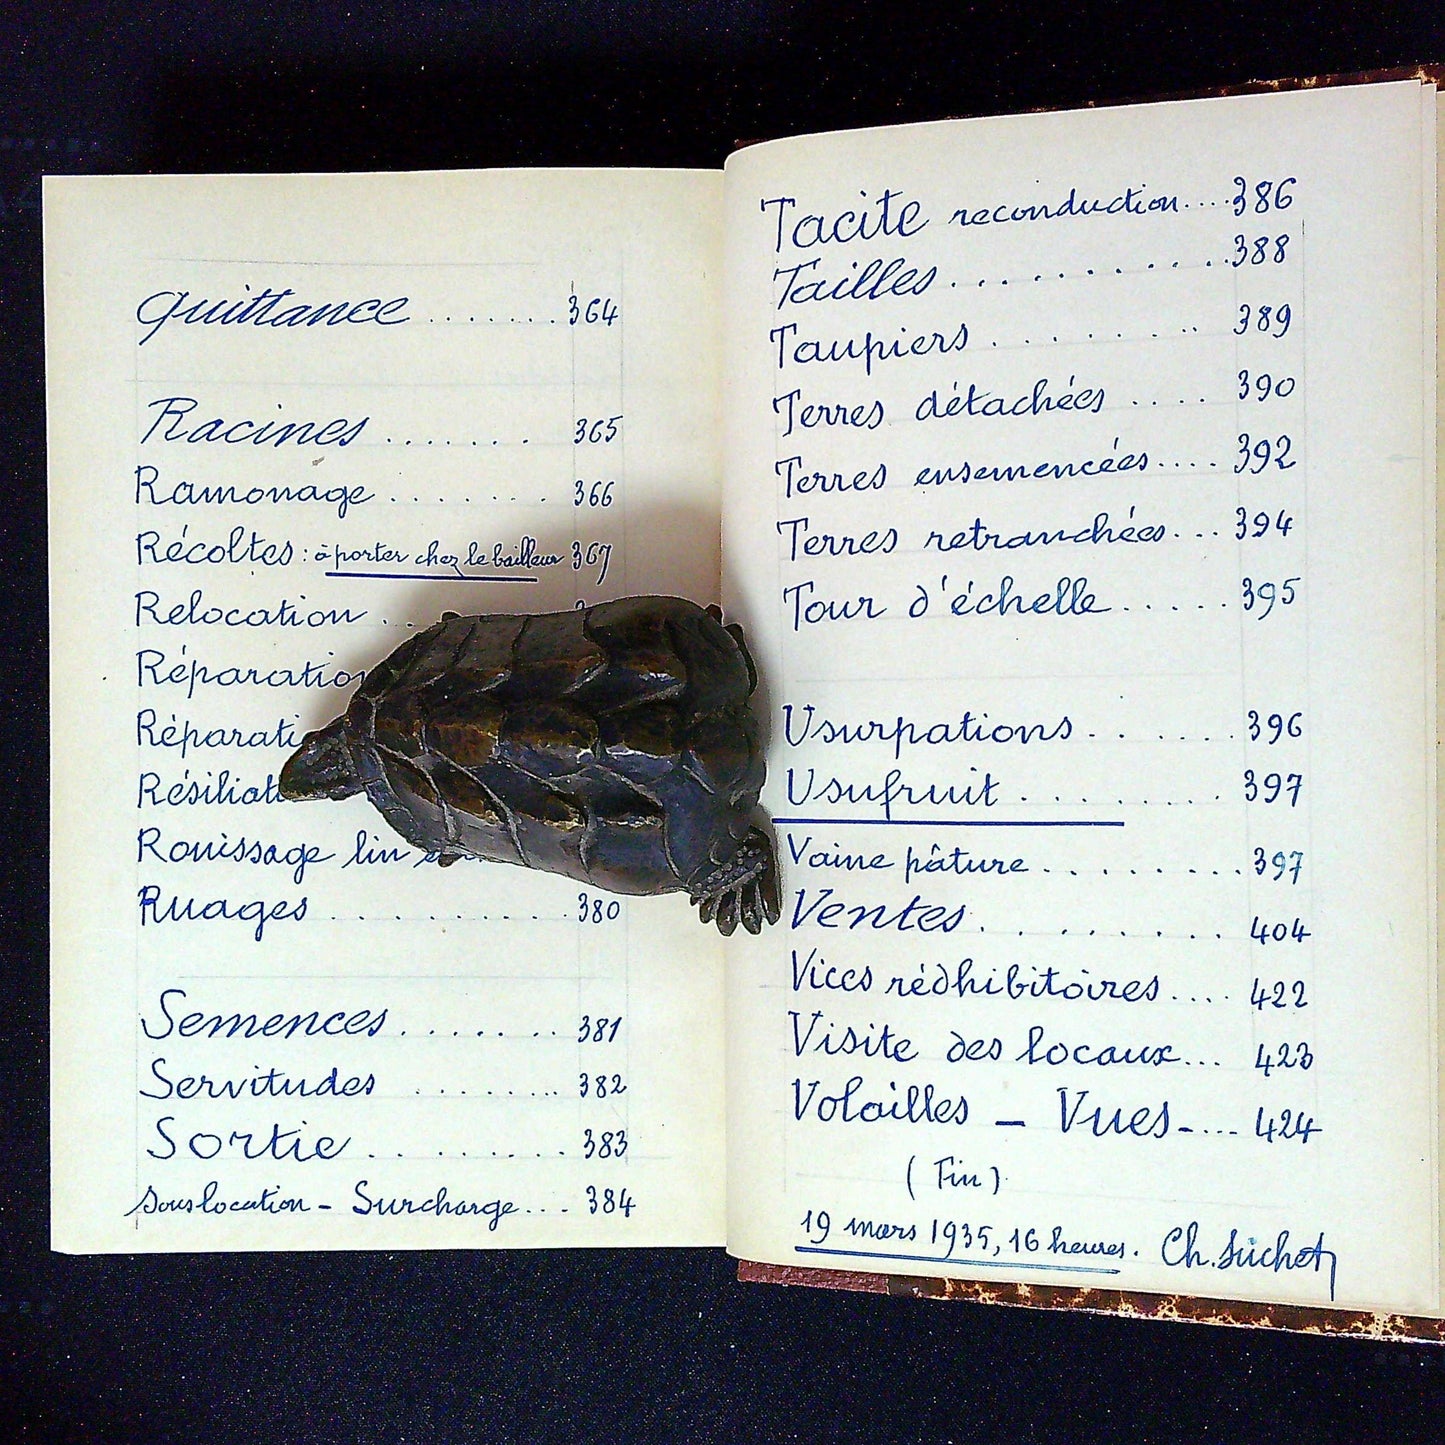 Quittance ....... 364
Racines ....... 365
Ramonage ........ 366
Récoltes : à porter chez le bailleur 367
Relocation ..
Réparation
Réparati
Résiliat
Rouissage lin
Ruages .......... 380
Semences ....... 381
Servitudes ........ 382
Sortie ........ 383
Sous location - Surcharge... 384
Tacite reconduction .... 386
Tailles ........... 388
Taupiers ........ 389
Terres détachées .... 390
Terres ensemencées .... 392
Terres retranchées ... 394
Tour d'échelle ..... 395
Usurpations ...... 396
Usufruit ........ 397
Vaine pâture ......... 397
Ventes ......... 404
Vices rédhibitoires .... 422
Visite des locaux ... 423
Volailles - Vues -... 424
(Fin)
19 mars 1935, 16 heures. Ch. Suchet